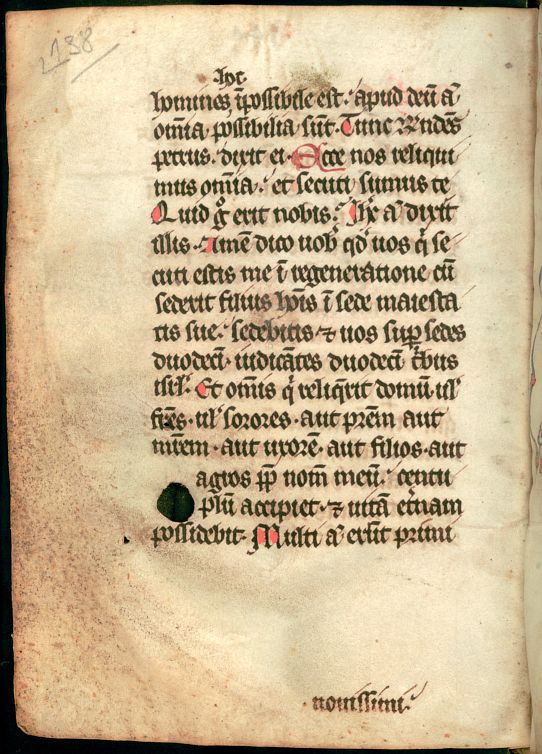 138
hoc
homines, īpossibile est. apud deū a̅
om̅ia possibilia sūt. Tunc r̅ndēs
petrus. dixit ei. Ecce nos reliqui
mus om̅ia. et secuti sumus te
Quid gͦ erit nobis. Ihc̅ a̅ dixit
illis. Amē dico uob' qd' uos qͥ se
cuti estis me ī regeneratione cū
sederit filius ho̅is ī sede maiesta
tis sue. sedebitis ⁊ uos suꝑ sedes
duodecī. iudicātes duodecī tͥbus
isrl'. Et om̅is qͥ reliqͥrit domū. ul'
fr̅es. ul' sorores. aut pr̅em aut
mr̅em. aut uxorē. aut filios. aut
agros ꝓp nom̅ meū. centu
plū accipiet. ⁊ uitā et̅nam
possidebit. Multi a̅ erūt primi
nouissimi.